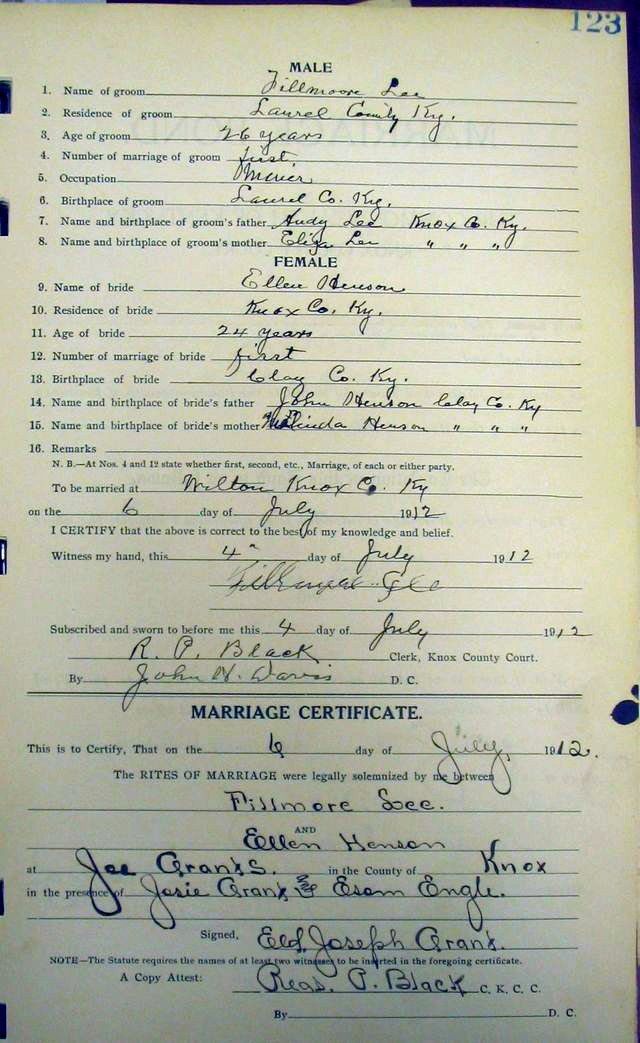 123
MALE
1. Name of groom Fillmoore Lee
2. Residence of groom Laurel County Ky.
3. Age of groom 26 years
4. Number of marriage of groom first.
5. Occupation Miner
6. Birthplace of groom Laurel Co. Ky.
7. Name and birthplace of groom's father Andy Lee Knox Co. Ky.
8. Name and birthplace of groom's mother Eliza Lee " " "
FEMALE
9. Name of bride Ellen Henson
10. Residence of bride Knox Co. Ky.
11. Age of bride 24 years
12. Number of marriage of bride first
13. Birthplace of bride Clay Co. Ky.
14. Name and birthplace of bride's father John Henson Clay Co. Ky
15. Name and birthplace of bride's mother Henson " " "
16. Remarks
N. B.—At Nos. 4 and 12 state whether first, second, etc., Marriage, of each or either party.
To be married at Wilton Knox Co. Ky
on the 6 day of July 1912
I CERTIFY that the above is correct to the best of my knowledge and belief.
Witness my hand, this 4 day of July 1912
Fillmore Lee
Subscribed and sworn to before me this 4 day of July 1912
R. P. Black Clerk, Knox County Court.
By John H. Davis D. C.
MARRIAGE CERTIFICATE.
This is to Certify, That on the 6 day of July, 1912.
The RITES OF MARRIAGE were legally solemnized by me between
Fillmore Lee.
AND
Ellen Henson
at Joe Grants. in the County of Knox
in the presence of Josie Grant Esom Engle.
Signed, Eld. Joseph Grant.
NOTE—The Statute requires the names of at least two witnesses to be inserted in the foregoing certificate.
A Copy Attest: Reas. P. Black C. K. C. C.
By D. C.